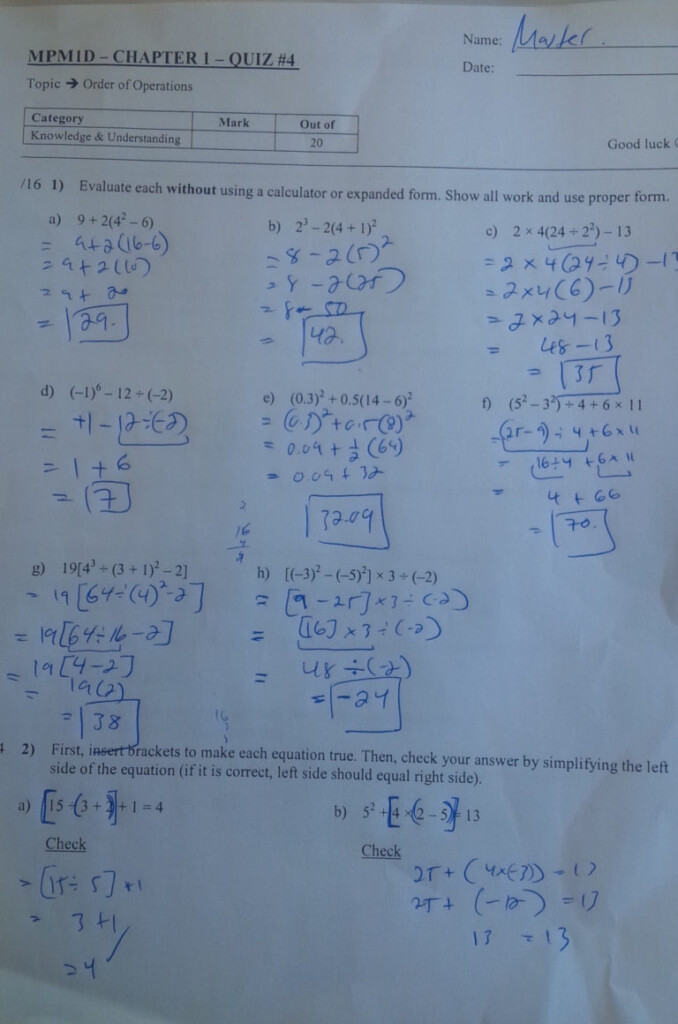 Name: Master.
MPM1D – CHAPTER 1 – QUIZ #4
Date:
Topic → Order of Operations
Category Mark Out of
Knowledge & Understanding 20
Good luck
/16 1) Evaluate each without using a calculator or expanded form. Show all work and use proper form.
a) 9 + 2(4² – 6)
= 9+2(16-6)
= 9+2(10)
= 9+ 20
= 29.
b) 2³ – 2(4 + 1)²
= 8 - 2(5)²
= 8 - 2(25)
= 8 - 50
= 42.
c) 2 × 4(24 ÷ 2²) – 13
= 2 × 4(24÷4) -13
= 2×4(6) -13
= 2×24-13
= 48-13
= 35
d) (–1)⁶ – 12 ÷ (–2)
= +1 - 12÷(-2)
= 1 + 6
= 7
e) (0.3)² + 0.5(14 – 6)²
= (0.3)²+0.5(8)²
= 0.09 + ½ (64)
= 0.09 + 32
32.09
f) (5² – 3²) ÷ 4 + 6 × 11
= (25-9) ÷ 4+6×11
= 16÷4 +6×11
= 4 + 66
= 70.
g) 19[4³ ÷ (3 + 1)² – 2]
= 19[64÷(4)²-2]
= 19[64÷16-2]
= 19[4-2]
= 19(2)
= 38
h) [(–3)² – (–5)²] × 3 ÷ (–2)
= [9 - 25]×3÷(-2)
= [16]×3÷(-2)
= 48÷(-2)
= -24
4 2) First, insert brackets to make each equation true. Then, check your answer by simplifying the left
side of the equation (if it is correct, left side should equal right side).
a) [15 ÷ (3 + 2)] + 1 = 4
Check
= [15÷5]+1
= 3+1
=4
b) 5² + [4 × (2 – 5)] = 13
Check
25 + (4×(-3)) = 13
25 + (-12) = 13
13 = 13